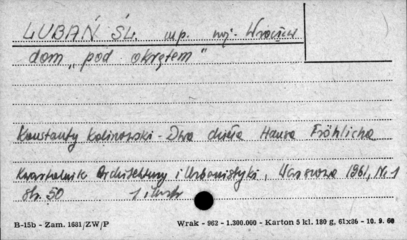 LUBAŃ ŚL. m.p. woj. Wrocław
dom "pod okrętem"
Konstanty Kalinowski - Dwa dzieła Hansa Fröhlicha
Kwartalnik Architektury i Urbanistyki, Warszawa 1961, Nr. 1
str. 50 1 ilustr
B-15b - Zam. 1681/ZW/P Wrak - 962 - 1.300.000 - Karton 5 kl. 180 g, 61x86 - 10. 9. 60